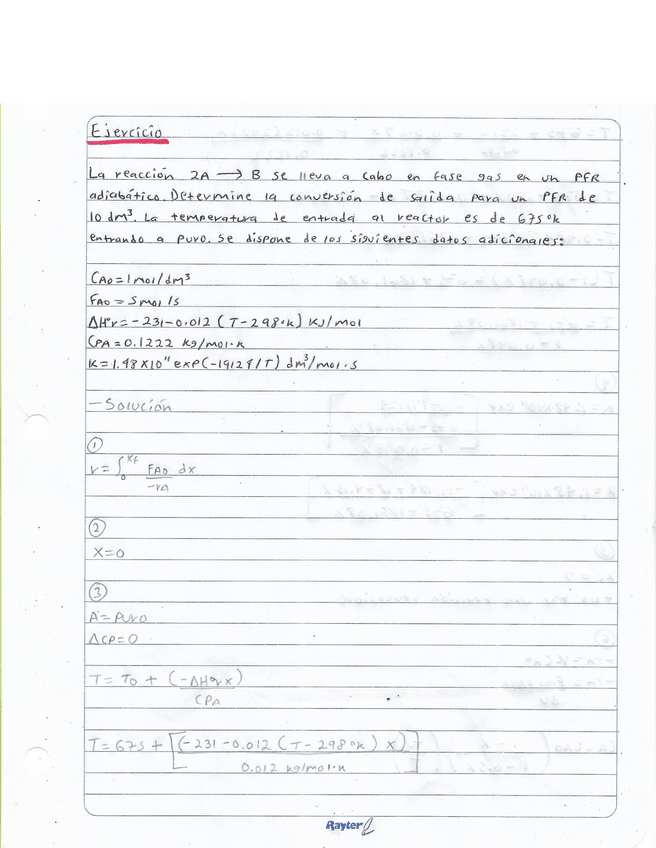 Ejercicio
La reacción 2A → B se lleva a cabo en fase gas en un PFR
adiabático. Determine la conversión de salida para un PFR de
10 dm³. La temperatura de entrada al reactor es de 675°k
entrando a puro. Se dispone de los siguientes datos adicionales:
CAO = 1 mol/dm³
FAO = 5 mol/s
ΔH°r = -231 - 0.012 (T - 298°k) KJ/mol
CPA = 0.1222 kg/mol·k
K = 1.48 x 10¹¹ exp (-19124/T) dm³/mol·s
- Solución
①
V = ∫₀^XF FAO dx
-rA
②
X = 0
③
A = Puro
ΔCP = 0
T = To + (-ΔH°r x)
CPA
T = 675 + [(-231 - 0.012 (T - 298°k) X)]
0.012 kg/mol·k
Rayter